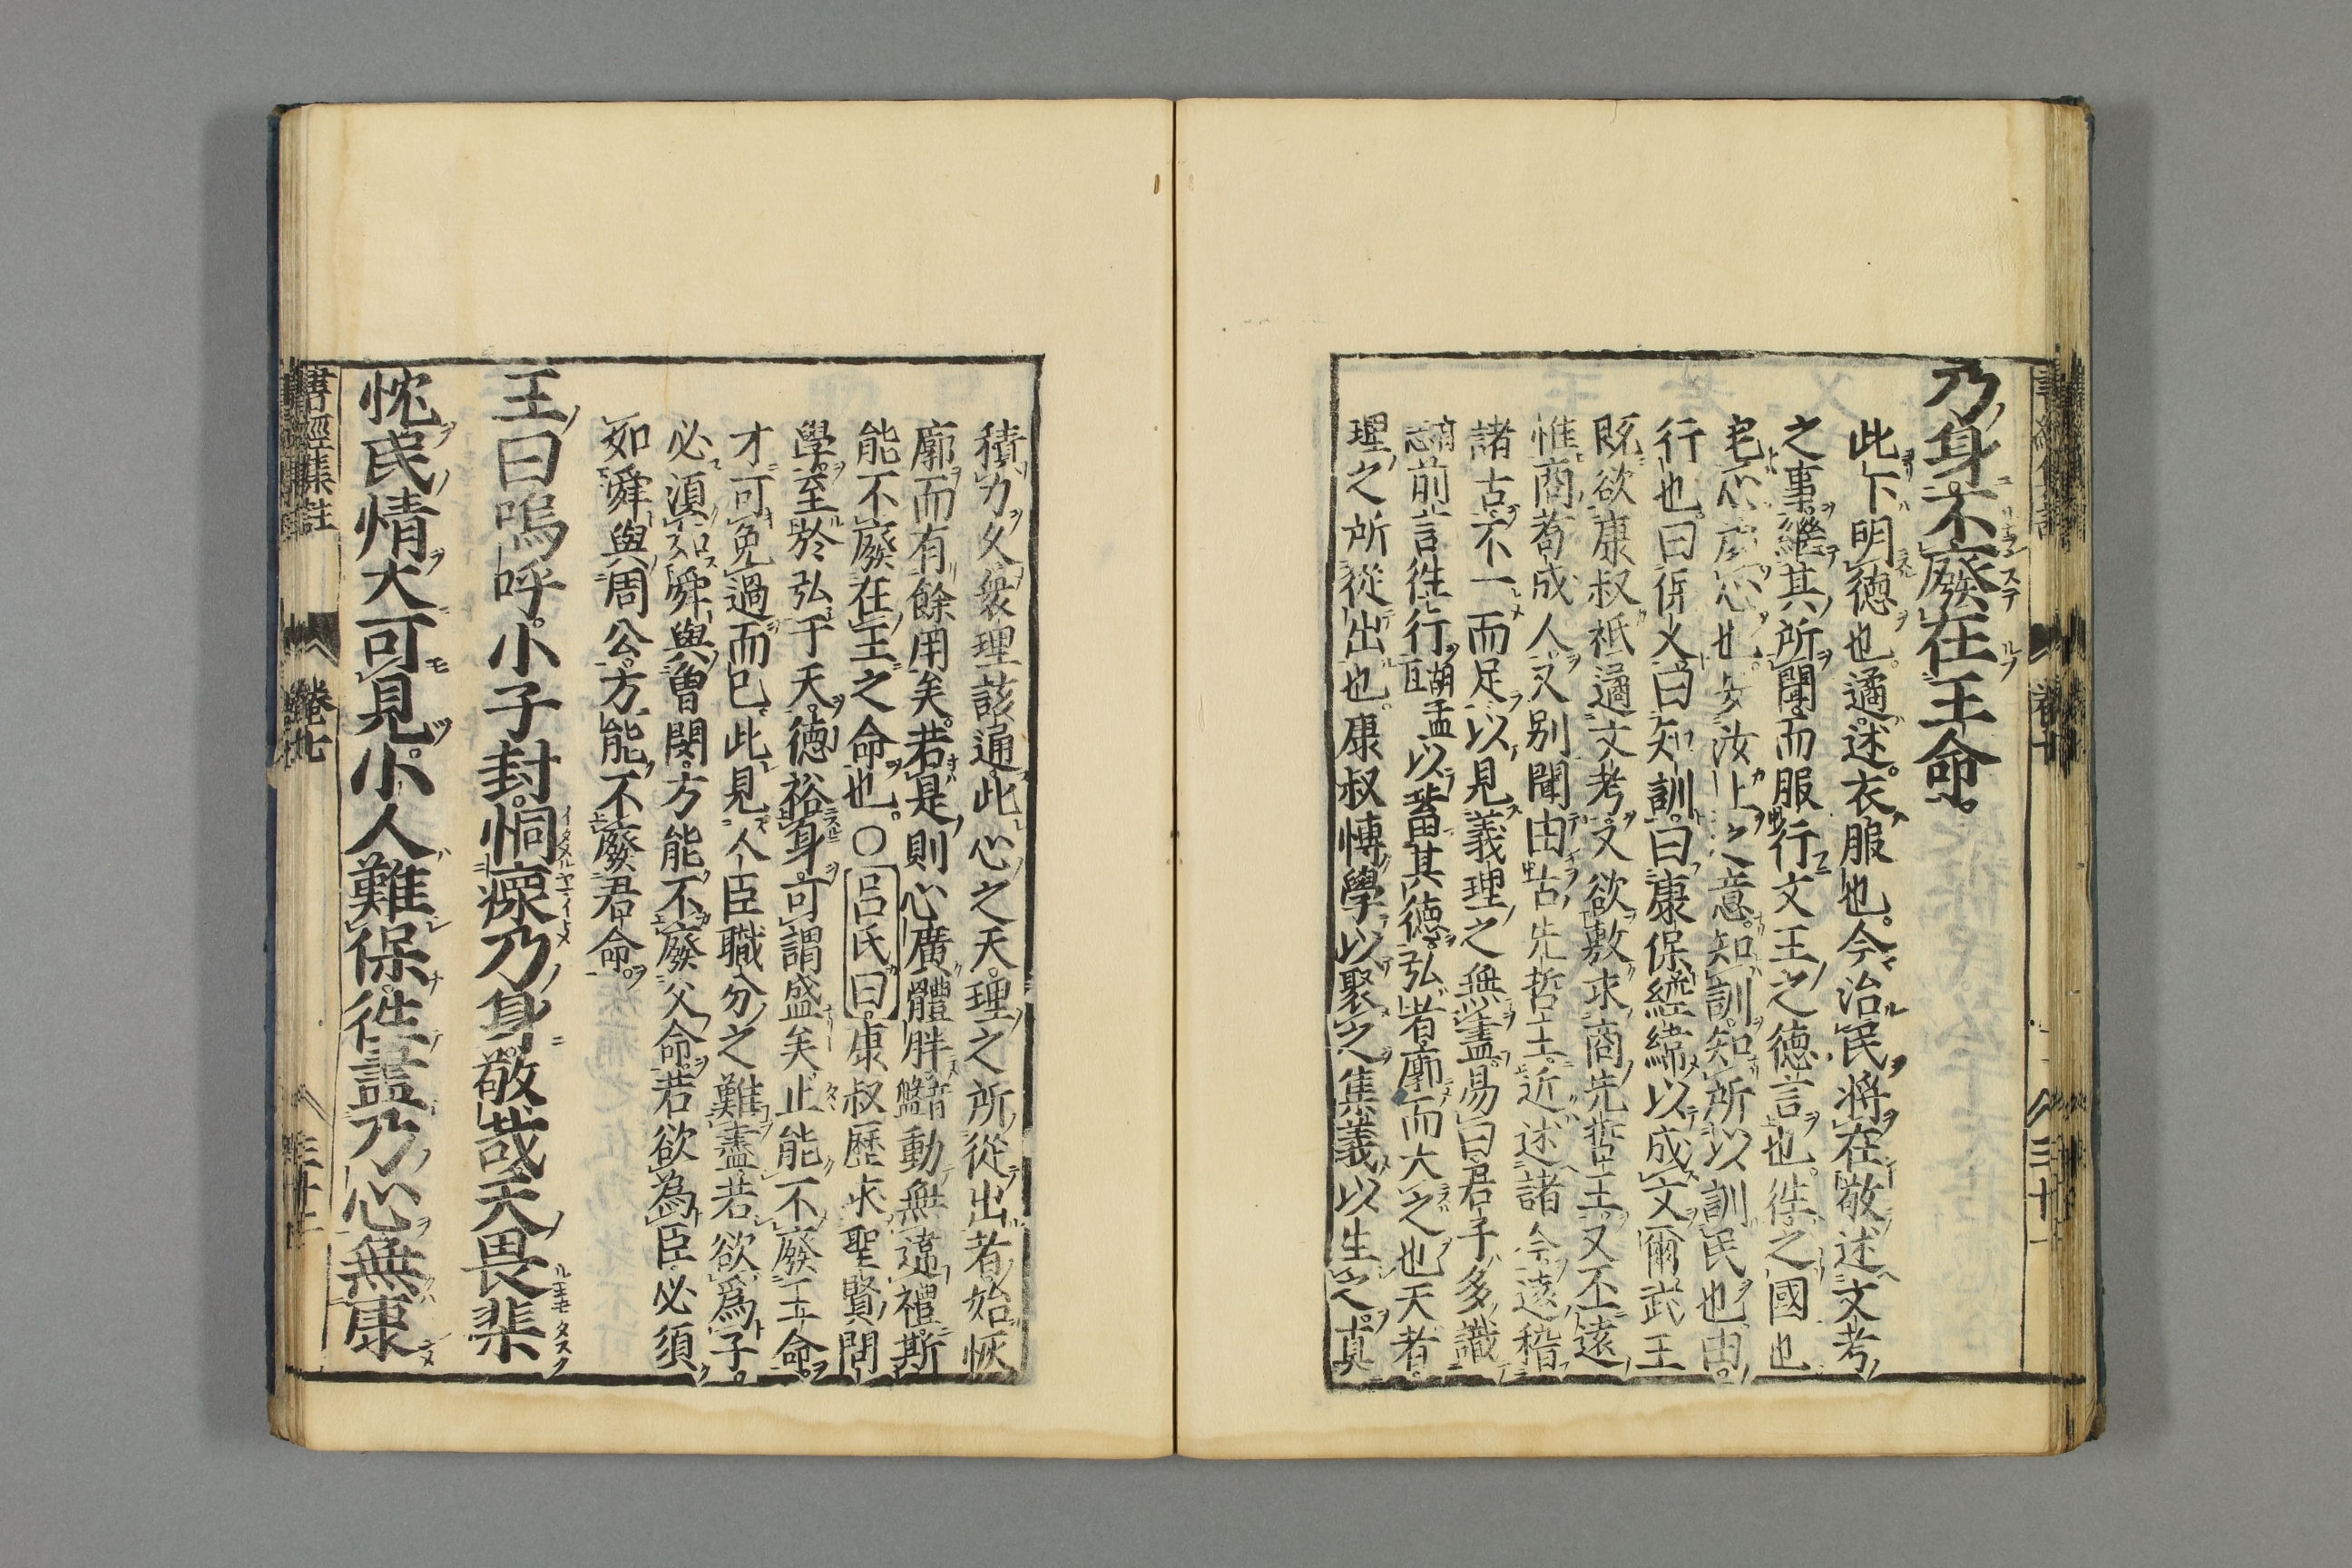 乃身不廢在王命
此下明德也遹述衣服也今治民將在敬述文考
之事繼其所聞而服行文王之德言也徃之國也
宅心處心也安汝止之意知訓知所以訓民也由
行也曰保乂曰知訓曰康保經緯以成文爾武王
既欲康叔祗遹文考又欲敷求商先哲王又丕遠
惟商耇成人又别聞由古先哲王近述諸今遠稽
諸古不一而足以見義理之無盡易曰君子多識
前言徃行以畜其德弘者廓而大之也天者
理之所從出也康叔博學以聚之集義以生之真
積力久衆理該通此心之天理之所從出者始恢
廓而有餘用矣若是則心廣體胖動無違禮斯
能不廢在王之命也○呂氏曰康叔歷求聖賢問
學至於弘于天德裕身可謂盛矣止能不廢王命
才可免過而已此見人臣職分之難盡若欲爲子
必須如舜與曾閔方能不廢父命若欲為臣必須
如舜與周公方能不廢君命
王曰嗚呼小子封恫瘝乃身敬哉天畏棐
忱民情大可見小人難保徃盡乃心無康
書經集註 卷七 三十二